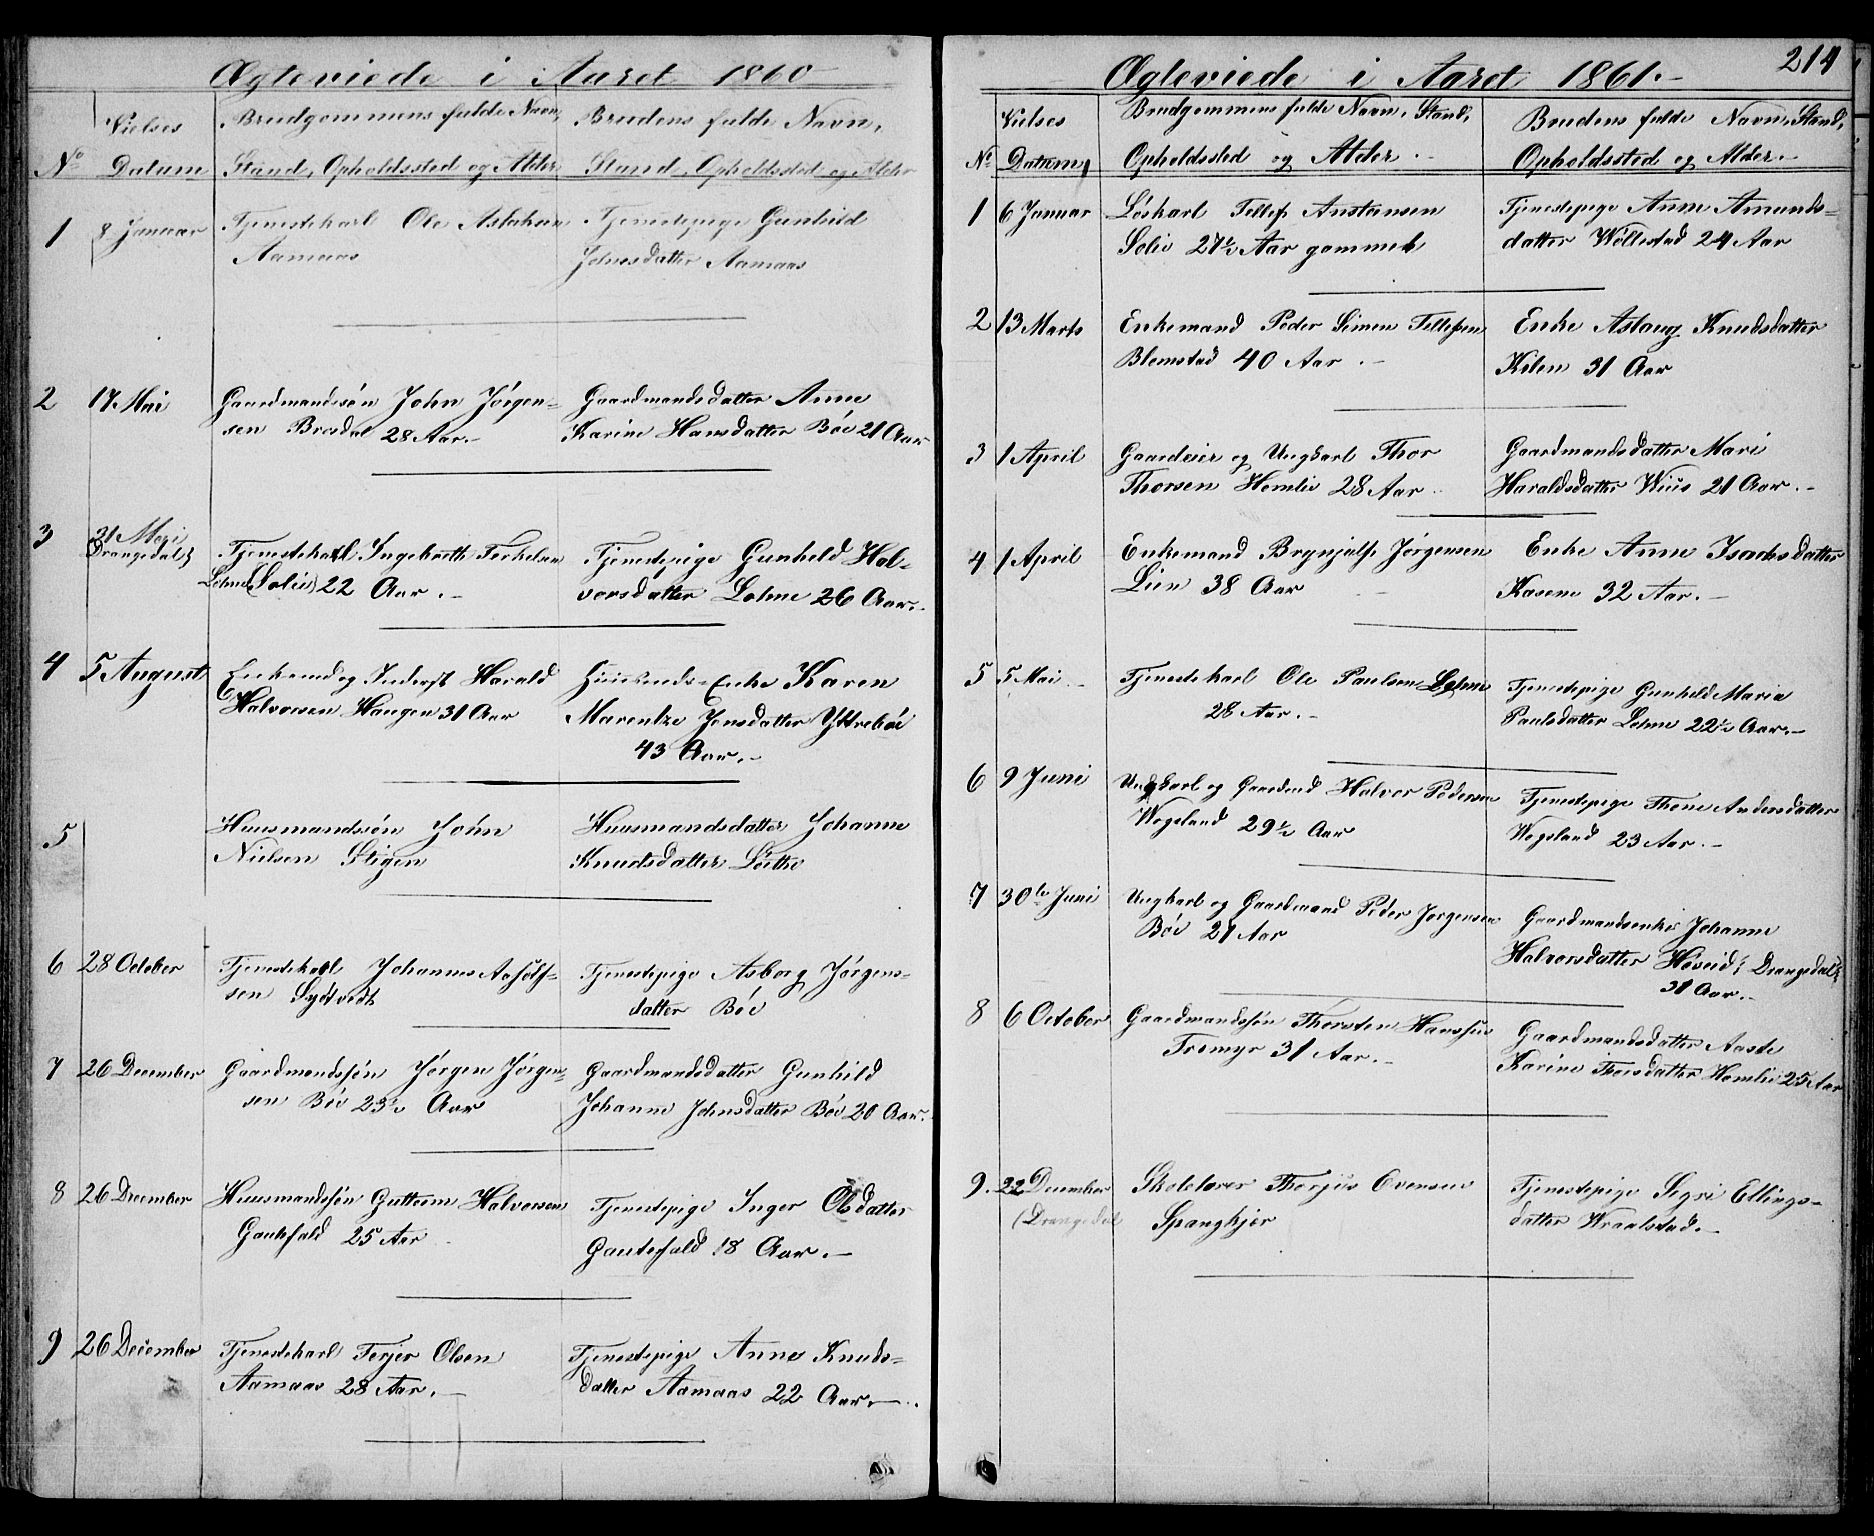 Ægteviede i Aaret 1860
No
Vielses
Datum
Brudgommens fulde Navn,
Stand, Opholdssted og Alder
Brudens fulde Navn,
Stand, Opholdssted og Alder
1
8 Januar
Tjenestekarl Ole Aslaksen
Aamaas
Tjenestepige Gunhild
Johnsdatter Aamaas
2
17 Mai
Gaardmandssøn John Jørgen-
sen Bresdal 28 Aar.-
Gaardmandsdatter Anne
Karine Hansdatter Bøe 21 Aar
3
31 Mai
Drangedal
Tjenestekarl Ingebreth Terkelsen
Lohne (Solie) 22 Aar.-
Tjenestepige Gunhild Hal-
vorsdatter Lohne 26 Aar.-
4
5 August
Enkemd og Inderst Harald
Halvorsen Haugen 31 Aar
Huusmands-Enke Karen
Marentze Jensdatter Yttrebøe
43 Aar.-
5
Huusmandssøn John
Nielsen Stigen
Huusmandsdatter Johanne
Knudsdatter
6
28 October
Tjenestekarl Johannes
sen Sydtvedt
Tjenestepige Asborg Jørgens-
datter Bøe
7
26 December
Gaardmandssøn Jørgen Jørgen-
sen Bøe 23½ Aar
Gaardmandsdatter Gunhild
Johanne Johnsdatter Bøe 20 Aar.
8
26 December
Huusmandssøn Guttorm Halvorsen
Gautefald 25 Aar
Tjenestepige Inger Olsdatter
Gautefald 18 Aar.-
9
26 December
Tjenestekarl Terjer Olsen
Aamaas 28 Aar.-
Tjenestepige Anne Knuds-
datter Aamaas 22 Aar.-
214
Ægteviede i Aaret 1861.-
No
Vielses
Datum
Brudgommens fulde Navn, Stand,
Opholdssted og Alder.-
Brudens fulde Navn, Stand,
Opholdssted og Alder.-
1
6 Januar
Løskarl Tellef Anstensen
Solie 27½ Aar gammel
Tjenestepige Anne Amunds-
datter Wøllestad 24 Aar
2
13 Marts
Enkemand Peder Simen Tellefsen
Blemstad 40 Aar.-
Enke Aslaug Knudsdatter
Kilen 31 Aar
3
1 April
Gaardeier og Ungkarl Thor
Thorsen Homlie 28 Aar
Gaardmandsdatter Mari
Haraldsdatter Wiis 21 Aar.-
4
1 April
Enkemand Brynjulf Jørgensen
Lien 38 Aar
Enke Anne Isaksdatter
Kasene 32 Aar.-
5
5 Mai
Tjenestekarl Ole Paulsen Lohne
28 Aar.-
Tjenestepige Gunhild Maria
Paulsdatter Lohne 22½ Aar.-
6
9 Juni
Ungkarl og Gaardmd Halvor Pedersen
Wegeland 29½ Aar
Tjenestepige Thone Andersdatter
Wegeland 23 Aar.-
7
30te Juni
Ungkarl og Gaardmand Peder Jørgensen
Bøe 27 Aar
Gaardmandsenke Johanne
Halvorsdatter Høveid i Drangedal
31 Aar.-
8
6 October
Gaardmandssøn Thorsten Hanssen
Tromyr 31 Aar.-
Gaardmandsdatter Aaste
Karine Thorsdatter Homlie 25 Aar
9.
22 December
(Drangedal
Skolelærer Thorjus Evensen
Spangkjær
Tjenestepige Segri Ellings-
datter Wraalstad.-